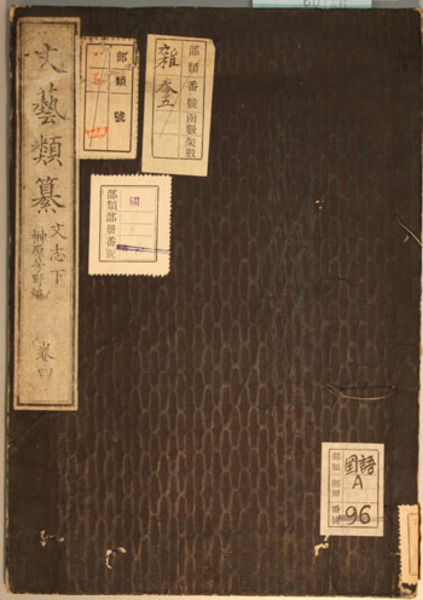 文藝類纂 文志下
榊原芳野編
巻四
部類號
四
部類番號函數架數
雜
參五
部類部册番號
國
部類部册番號
国語
A
96